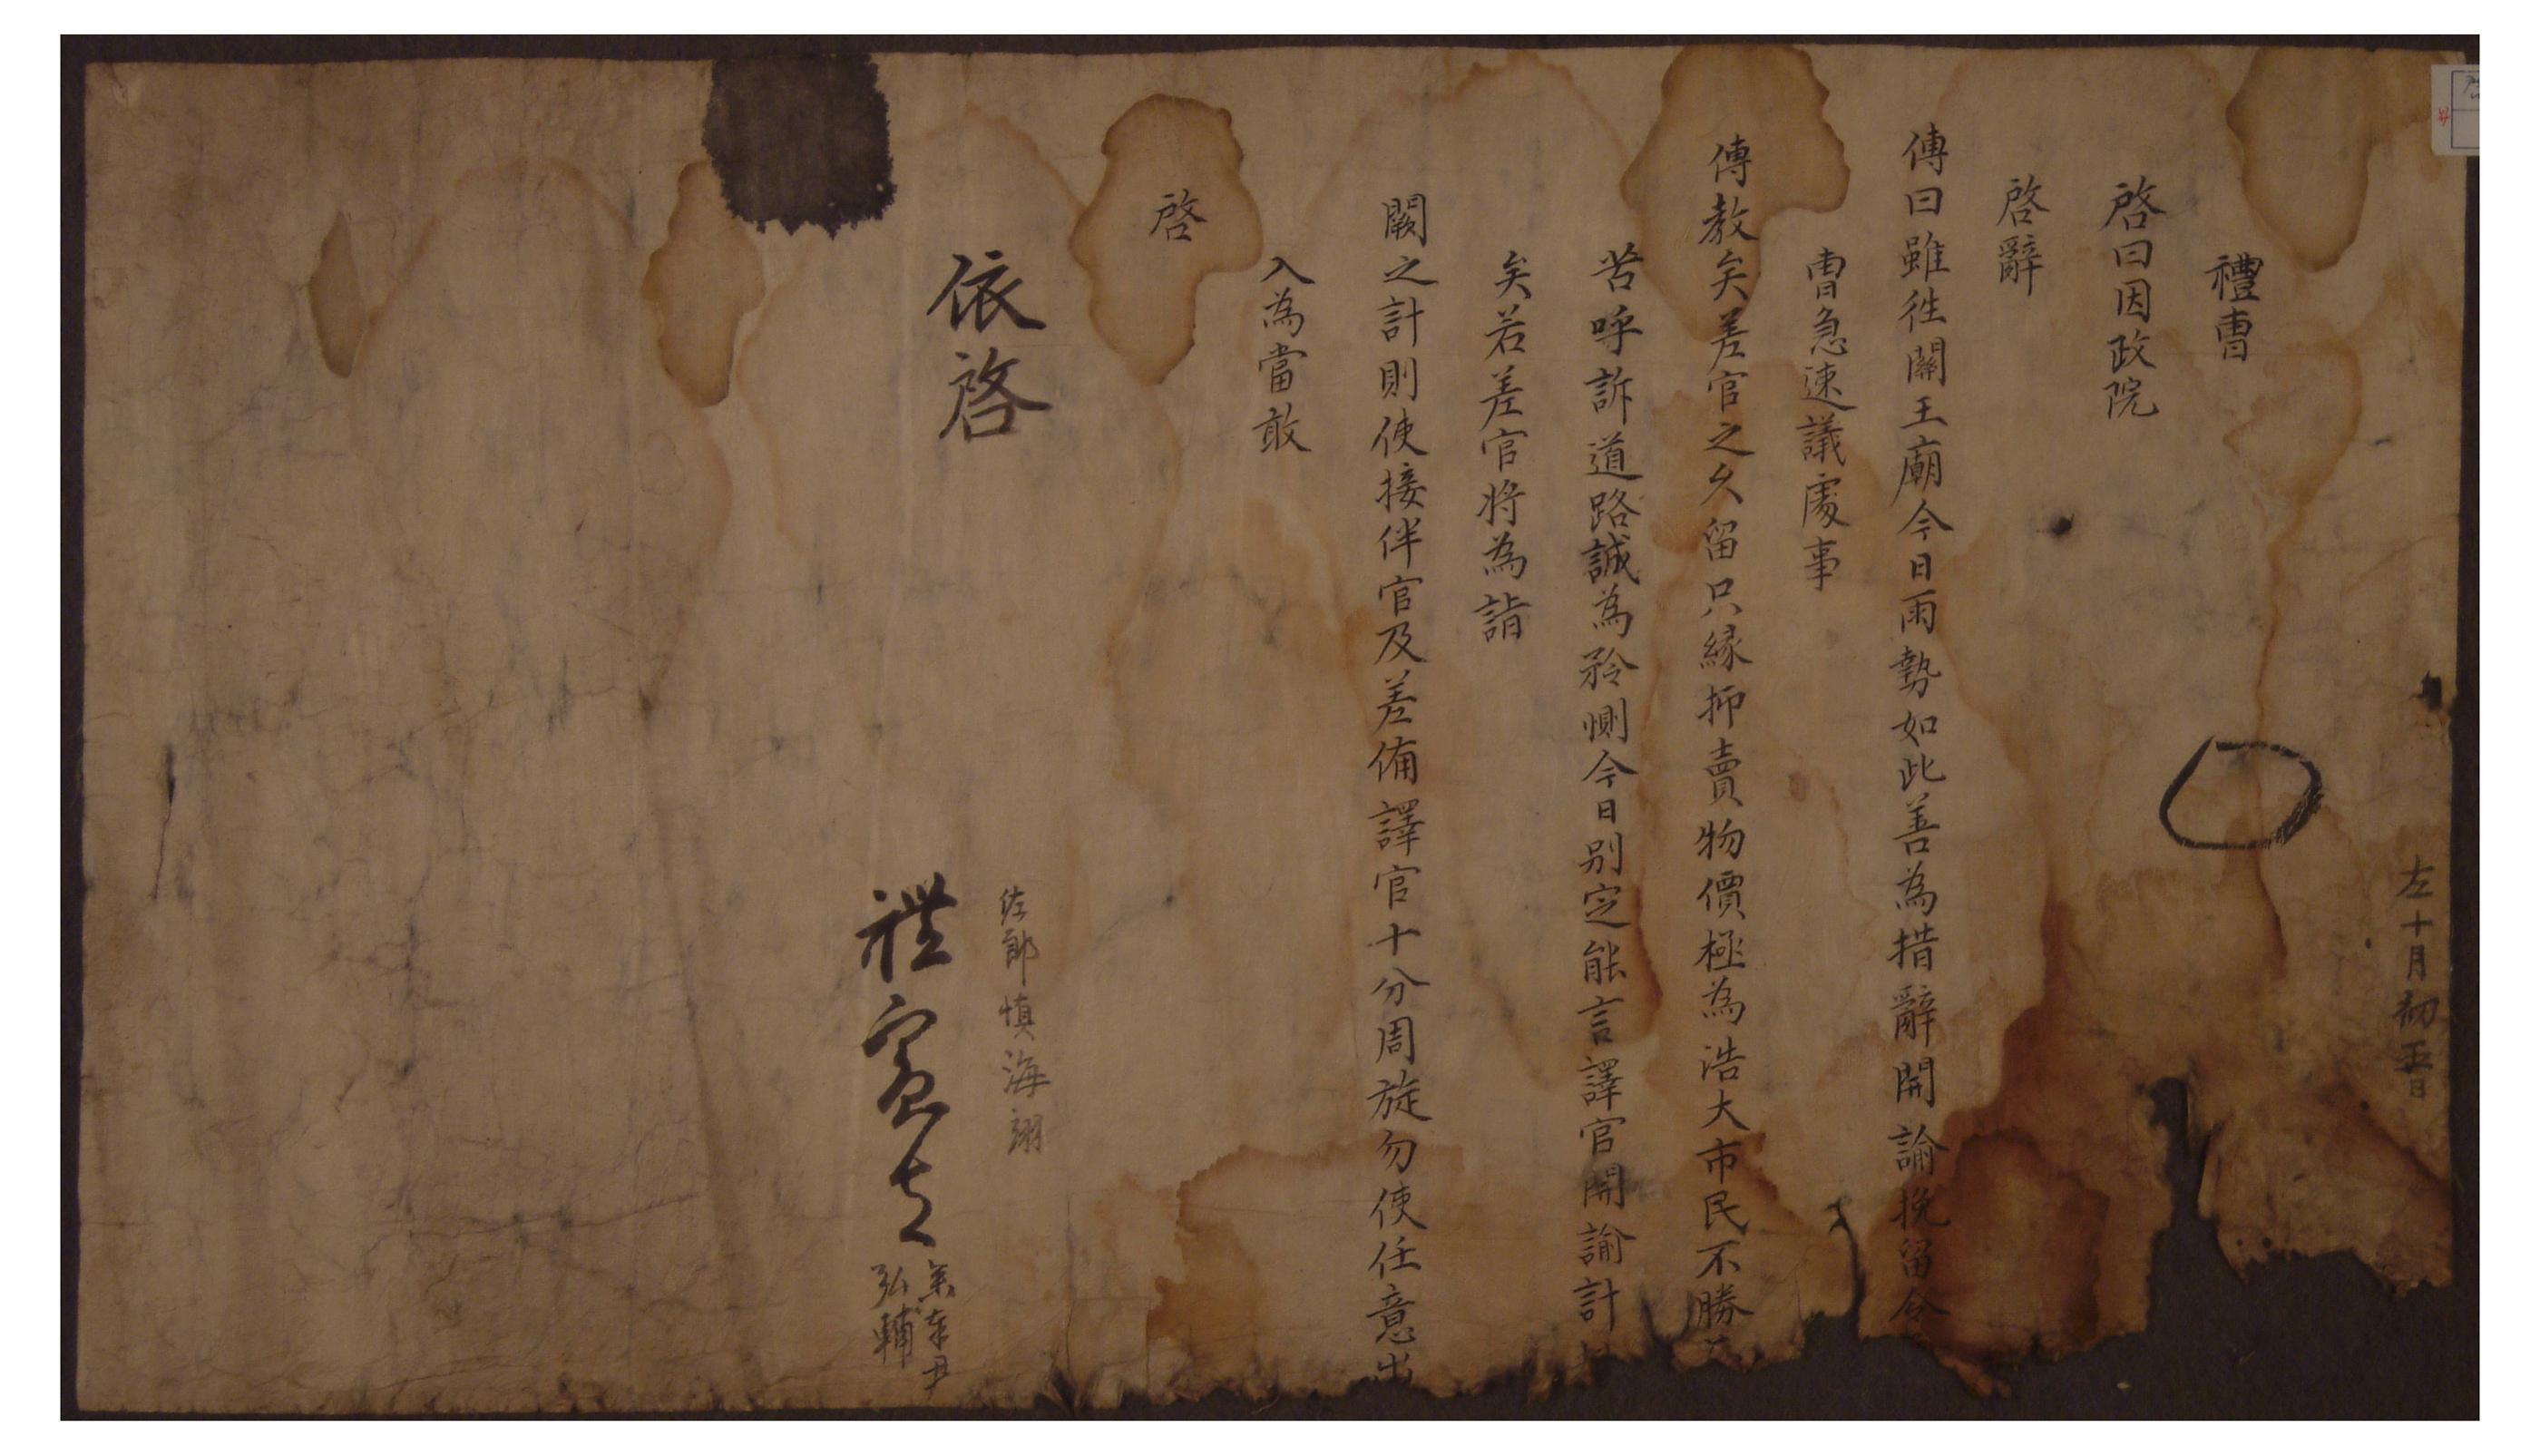 左十月初五日
禮曹
啓曰因政院
啓辭
傳曰雖徃關王廟今日雨勢如此善為措辭開諭挽留令
曺急速議處事
傳教矣差官之久留只縁抑賣物價極為浩大市民不勝
苦呼訴道路誠為矜惻今日别定能言譯官開諭計
矣若差官将為詣
闕之計則使接伴官及差俻譯官十分周旋勿使任意出
入為當敢
啓
依啓
佐郎慎海翊
禮
弘輔